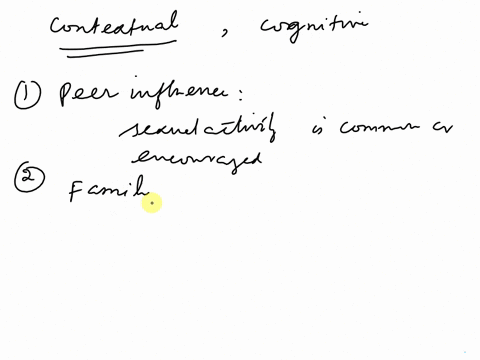 Contextual , cognitive
① Peer influence :
sexual activity is common or
encouraged
② Famil